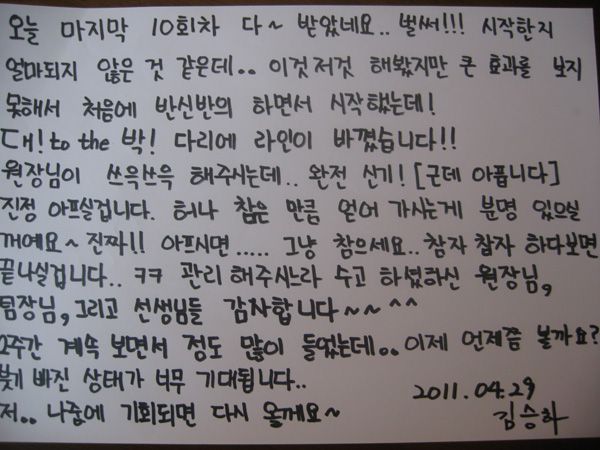 오늘 마지막 10회차 다~ 받았네요.. 벌써!!! 시작한지
얼마되지 않은 것 같은데.. 이것저것 해봤지만 큰 효과를 보지
못해서 처음에 반신반의 하면서 시작했는데!
대! to the 박! 다리에 라인이 바꼈습니다!!
원장님이 쓰윽쓰윽 해주시는데.. 완전 신기! [근데 아픕니다]
진정 아프실겁니다. 허나 참은 만큼 얻어 가시는게 분명 있으실
꺼예요~ 진짜!! 아프시면..... 그냥 참으세요.. 참자 참자 하다보면
끝나실겁니다.. ㅋㅋ 관리 해주시느라 수고 하셨하신 원장님,
팀장님, 그리고 선생님들 감사합니다~~^^
2주간 계속 보면서 정도 많이 들었는데.. 이제 언제쯤 볼까요?
붓기 빠진 상태가 너무 기대됩니다..
저.. 나중에 기회되면 다시 올께요~
2011.04.29
김승하